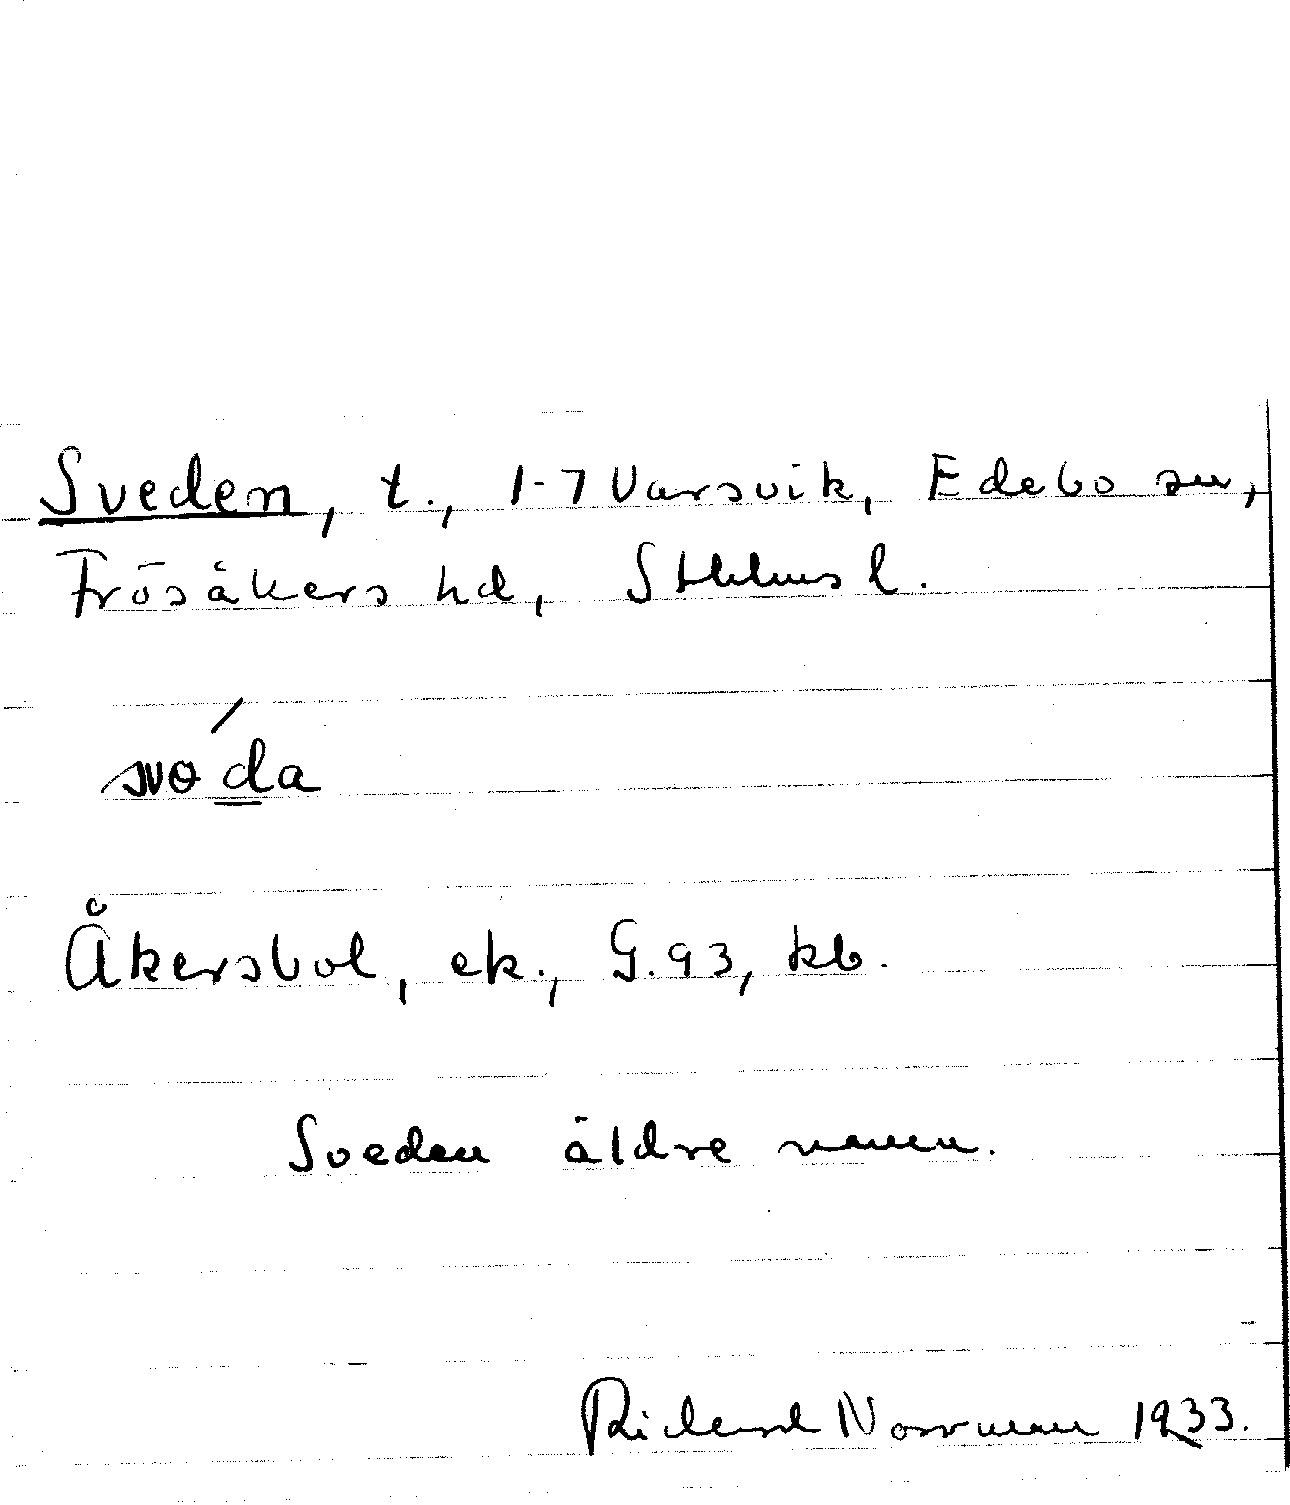 Sveden, t., 1-7 Varsvik, Edebo sn,
Frösåkers hd, Sthlms l.
svɵ́da
Åkersbol, ek., G.93, kb.
Sveden äldre namn.
Richard Norrman 1933.